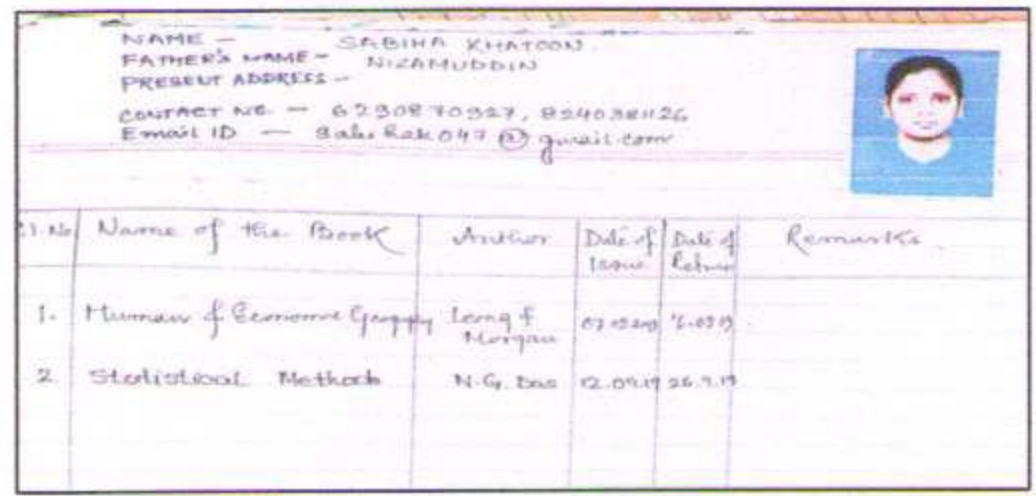 NAME - SABIHA KHATOON
FATHER'S NAME - NIZAMUDDIN
PRESENT ADDRESS -
CONTACT NO. - 6290870927,
Email ID - @gmail.com
Sl. No Name of the Book Author Date of Issue Date of Return Remarks
1. Human & Economic Leong & Morgan
2 Statistical Methods N.G. Das 12.09.19 26.9.19